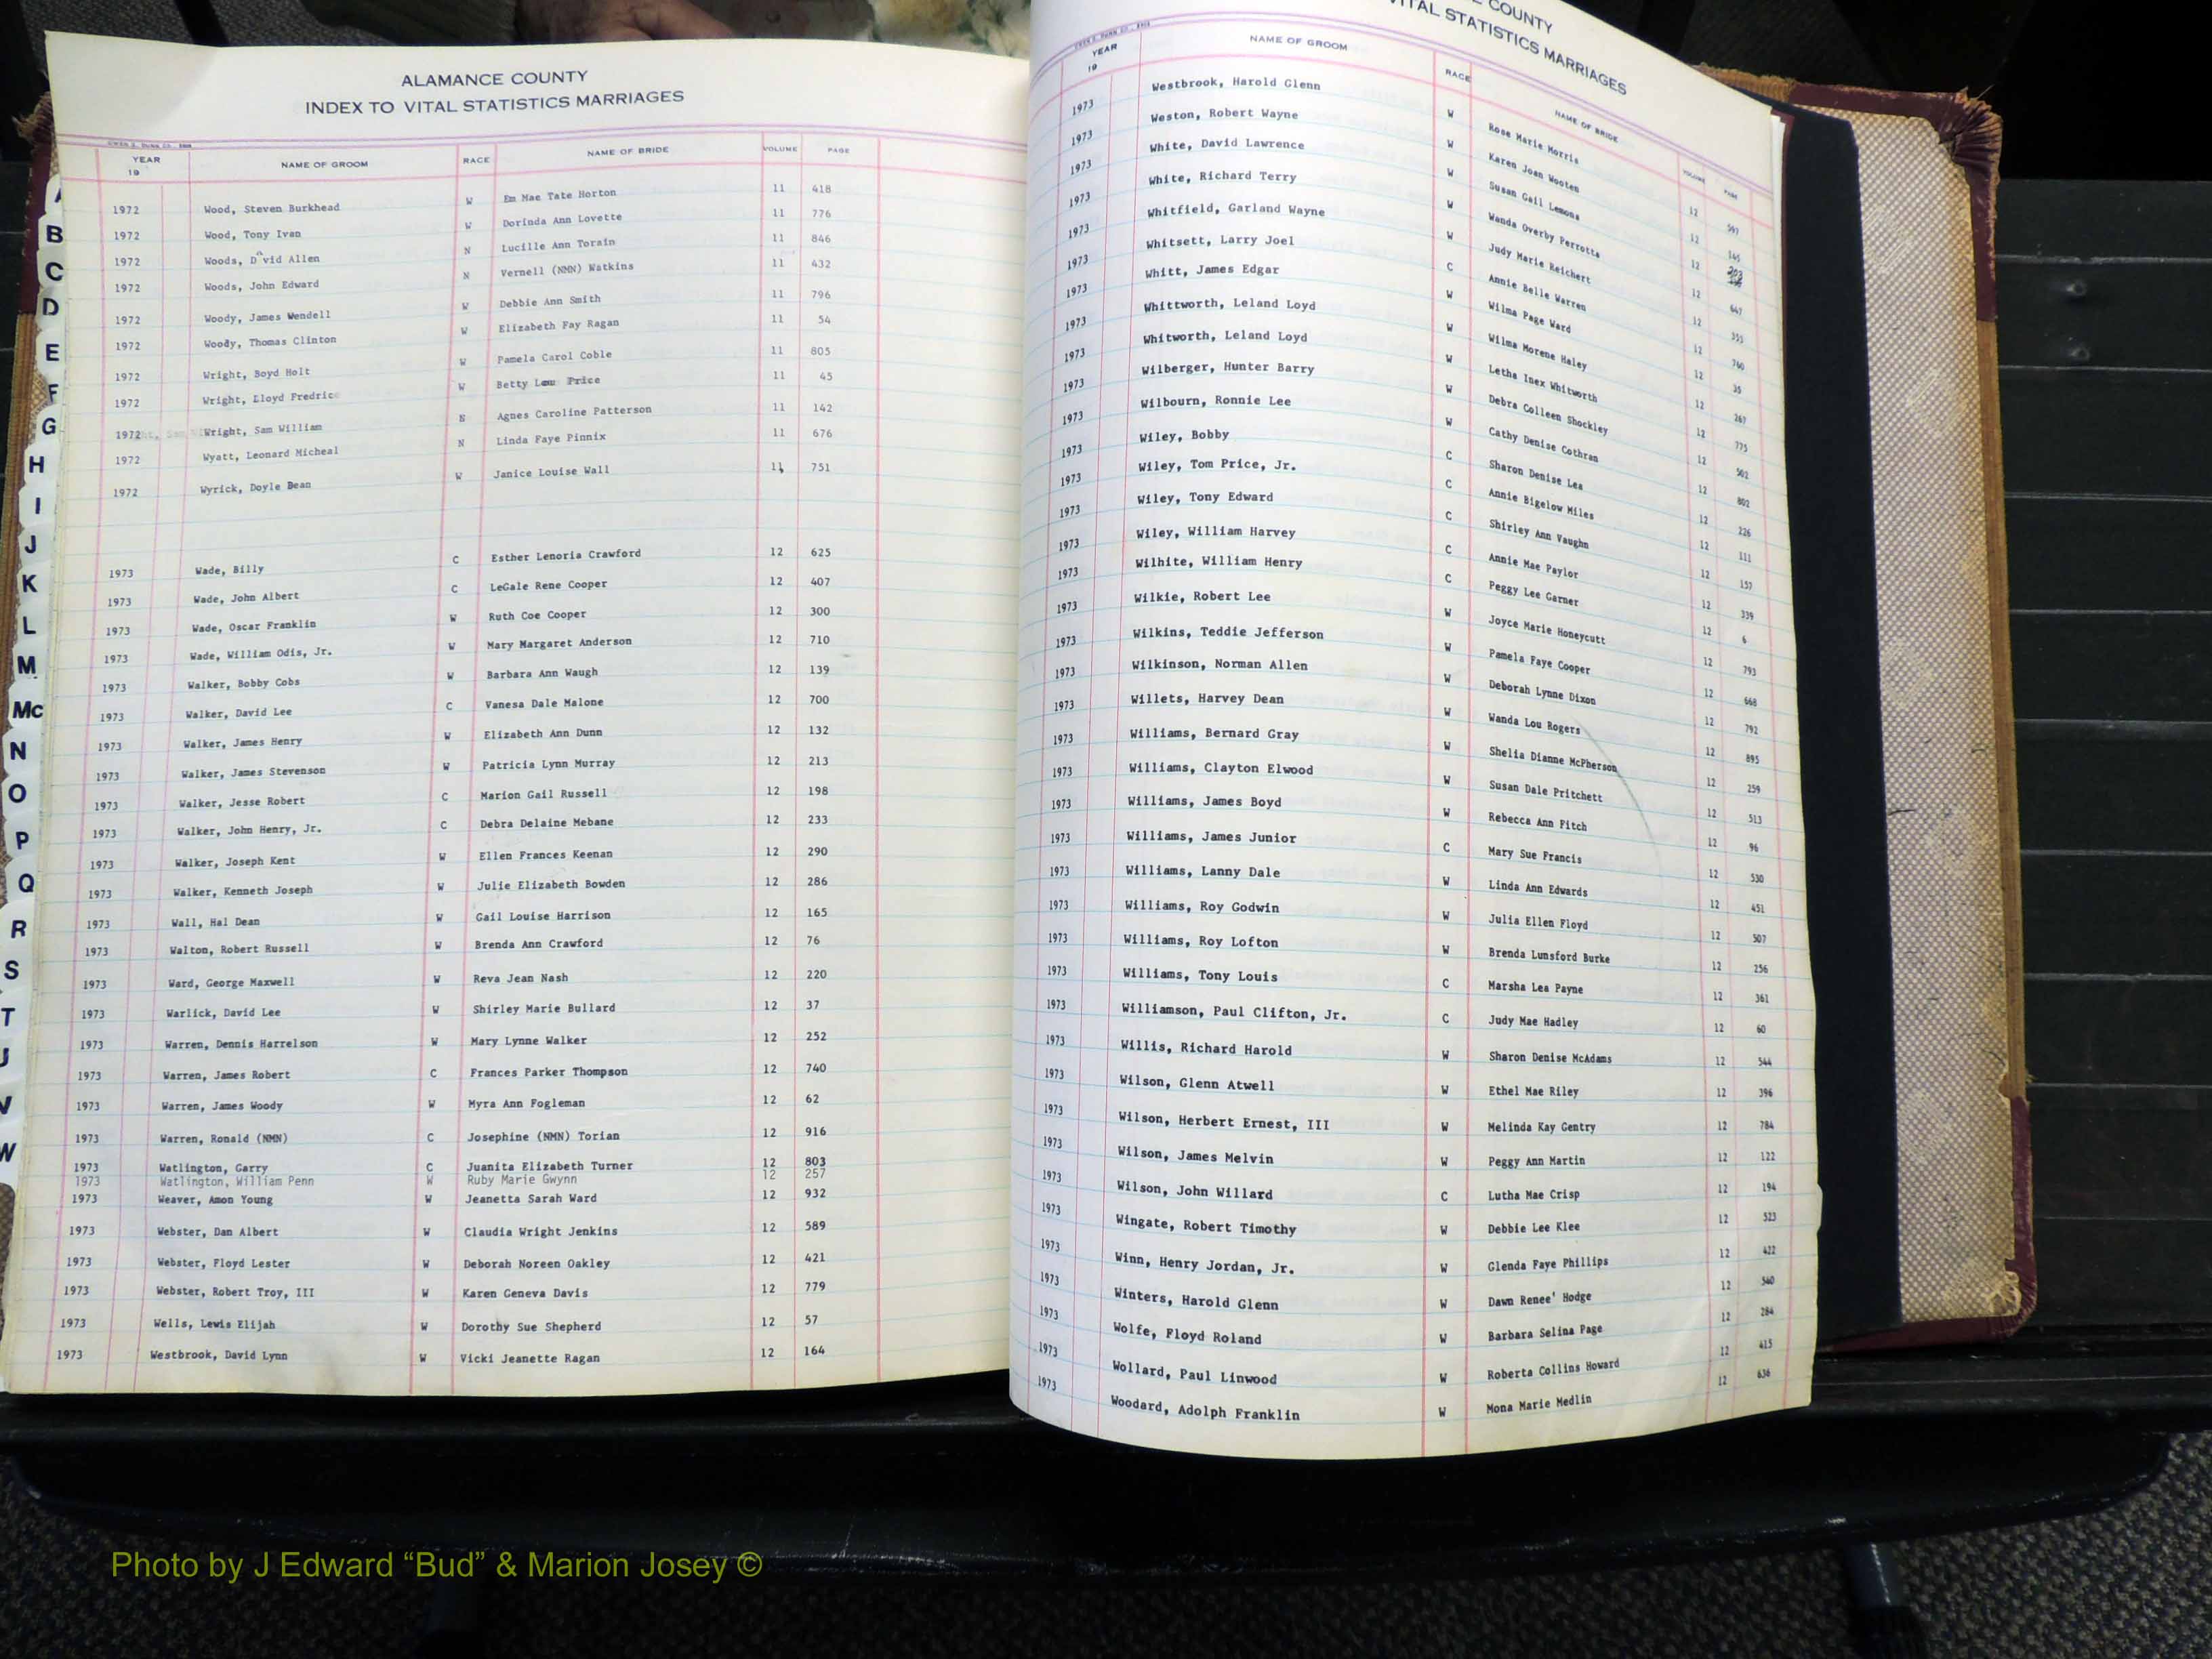 ALAMANCE COUNTY
INDEX TO VITAL STATISTICS MARRIAGES
OWEN G. DUNN CO.
YEAR 19 NAME OF GROOM RACE NAME OF BRIDE VOLUME PAGE
1972 Wood, Steven Burkhead W Em Mae Tate Horton 11 418
1972 Wood, Tony Ivan W Dorinda Ann Lovette 11 776
1972 Woods, David Allen N Lucille Ann Torain 11 846
1972 Woods, John Edward N Vernell (NMN) Watkins 11 432
1972 Woody, James Wendell W Debbie Ann Smith 11 796
1972 Woody, Thomas Clinton W Elizabeth Fay Ragan 11 54
1972 Wright, Boyd Holt W Pamela Carol Coble 11 805
1972 Wright, Lloyd Fredric W Betty Lou Price 11 45
1972 Wright, Sam William N Agnes Caroline Patterson 11 142
1972 Wyatt, Leonard Micheal N Linda Faye Pinnix 11 676
1972 Wyrick, Doyle Dean W Janice Louise Wall 11 751
1973 Wade, Billy C Esther Lenoria Crawford 12 625
1973 Wade, John Albert C LeGale Rene Cooper 12 407
1973 Wade, Oscar Franklin W Ruth Coe Cooper 12 300
1973 Wade, William Odis, Jr. W Mary Margaret Anderson 12 710
1973 Walker, Bobby Cobs W Barbara Ann Waugh 12 139
1973 Walker, David Lee C Vanesa Dale Malone 12 700
1973 Walker, James Henry W Elizabeth Ann Dunn 12 132
1973 Walker, James Stevenson W Patricia Lynn Murray 12 213
1973 Walker, Jesse Robert C Marion Gail Russell 12 198
1973 Walker, John Henry, Jr. C Debra Delaine Mebane 12 233
1973 Walker, Joseph Kent W Ellen Frances Keenan 12 290
1973 Walker, Kenneth Joseph W Julie Elizabeth Bowden 12 286
1973 Wall, Hal Dean W Gail Louise Harrison 12 165
1973 Walton, Robert Russell W Brenda Ann Crawford 12 76
1973 Ward, George Maxwell W Reva Jean Nash 12 220
1973 Warlick, David Lee W Shirley Marie Bullard 12 37
1973 Warren, Dennis Harrelson W Mary Lynne Walker 12 252
1973 Warren, James Robert C Frances Parker Thompson 12 740
1973 Warren, James Woody W Myra Ann Fogleman 12 62
1973 Warren, Ronald (NMN) C Josephine (NMN) Torian 12 916
1973 Watlington, Garry C Juanita Elizabeth Turner 12 803
1973 Watlington, William Penn W Ruby Marie Gwynn 12 257
1973 Weaver, Amon Young W Jeanetta Sarah Ward 12 932
1973 Webster, Dan Albert W Claudia Wright Jenkins 12 589
1973 Webster, Floyd Lester W Deborah Noreen Oakley 12 421
1973 Webster, Robert Troy, III W Karen Geneva Davis 12 779
1973 Wells, Lewis Elijah W Dorothy Sue Shepherd 12 57
1973 Westbrook, David Lynn W Vicki Jeanette Ragan 12 164
B
C
D
E
F
G
H
I
J
K
L
M
Mc
N
O
P
Q
R
S
T
U
V
W
COUNTY
VITAL STATISTICS MARRIAGES
OWEN G. DUNN CO.
YEAR 19 NAME OF GROOM RACE NAME OF BRIDE VOLUME PAGE
1973 Westbrook, Harold Glenn W Rose Marie Morris 12 597
1973 Weston, Robert Wayne W Karen Joan Wooten 12 145
1973 White, David Lawrence W Susan Gail Lemons 12 203
1973 White, Richard Terry W Wanda Overby Perrotta 12 647
1973 Whitfield, Garland Wayne W Judy Marie Reichert 12 355
1973 Whitsett, Larry Joel C Annie Belle Warren 12 760
1973 Whitt, James Edgar W Wilma Page Ward 12 35
1973 Whittworth, Leland Loyd W Wilma Morene Haley 12 267
1973 Whitworth, Leland Loyd W Letha Inex Whitworth 12 775
1973 Wilberger, Hunter Barry W Debra Colleen Shockley 12 502
1973 Wilbourn, Ronnie Lee W Cathy Denise Cothran 12 802
1973 Wiley, Bobby C Sharon Denise Lea 12 226
1973 Wiley, Tom Price, Jr. C Annie Bigelow Miles 12 111
1973 Wiley, Tony Edward C Shirley Ann Vaughn 12 157
1973 Wiley, William Harvey C Annie Mae Paylor 12 339
1973 Wilhite, William Henry C Peggy Lee Garner 12 6
1973 Wilkie, Robert Lee W Joyce Marie Honeycutt 12 793
1973 Wilkins, Teddie Jefferson W Pamela Faye Cooper 12 668
1973 Wilkinson, Norman Allen W Deborah Lynne Dixon 12 792
1973 Willets, Harvey Dean W Wanda Lou Rogers 12 895
1973 Williams, Bernard Gray W Shelia Dianne McPherson 12 259
1973 Williams, Clayton Elwood W Susan Dale Pritchett 12 513
1973 Williams, James Boyd W Rebecca Ann Fitch 12 96
1973 Williams, James Junior C Mary Sue Francis 12 530
1973 Williams, Lanny Dale W Linda Ann Edwards 12 451
1973 Williams, Roy Godwin W Julia Ellen Floyd 12 507
1973 Williams, Roy Lofton W Brenda Lunsford Burke 12 256
1973 Williams, Tony Louis C Marsha Lea Payne 12 361
1973 Williamson, Paul Clifton, Jr. C Judy Mae Hadley 12 60
1973 Willis, Richard Harold W Sharon Denise McAdams 12 544
1973 Wilson, Glenn Atwell W Ethel Mae Riley 12 396
1973 Wilson, Herbert Ernest, III W Melinda Kay Gentry 12 784
1973 Wilson, James Melvin W Peggy Ann Martin 12 122
1973 Wilson, John Willard C Lutha Mae Crisp 12 194
1973 Wingate, Robert Timothy W Debbie Lee Klee 12 523
1973 Winn, Henry Jordan, Jr. W Glenda Faye Phillips 12 422
1973 Winters, Harold Glenn W Dawn Renee' Hodge 12 540
1973 Wolfe, Floyd Roland W Barbara Selina Page 12 284
1973 Wollard, Paul Linwood W Roberta Collins Howard 12 415
1973 Woodard, Adolph Franklin W Mona Marie Medlin 12 636
Photo by J Edward “Bud” & Marion Josey ©